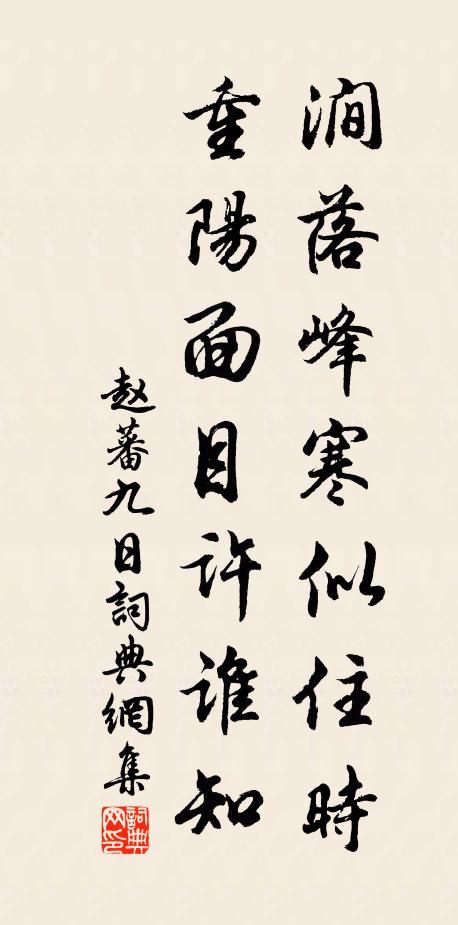 澗落峰寒似住時
重陽面目許誰知
赵蕃九日詞典網集
詞典网印